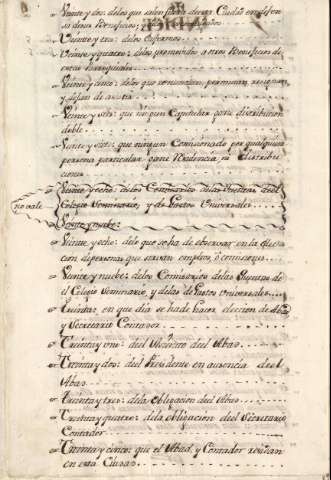 Veinte y dos: delos que salen fuera de esta Ciudad en defen
sa de sus Beneficios
Veinte y tres: delos Enfermos
Veinte y quatro: delos promovidos a otros Beneficios de
estas Parroquiales
Veinte y cinco: delos que renuncian, permutan, resignan
y dejan de asistir
Veinte y seis: que ningun Capitular gane distribucion
doble
Veinte y siete: que ningun Comisionado por qualquiera
persona particular gane Residencia ni distribu
ciones
Veinte y ocho: delos Comisarios delas Quentas del
Colegio Seminario, y de Gastos Universales
no vale
Veinte y nuebe:
Veinte y ocho: delo que se ha de observar en la Elec
cion de persona que sirvan empleos, ô comisiones
Veinte y nuebe: delos Comisarios delas Quentas de
el Colegio Seminario, y delas de Gastos Universales
Treinta: en que dia se ha de hacer eleccion de Abad
y Secretario Contador
Treinta y uno: de el Juramento de el Abad
Treinta y dos: de el Presidente en ausencia de el
Abad
Treinta y tres: dela obligacion de el Abad
Treinta y quatro: dela obligacion de el Secretario
Contador
Treinta y cinco: que el Abad, y Contador residan
en esta Ciudad